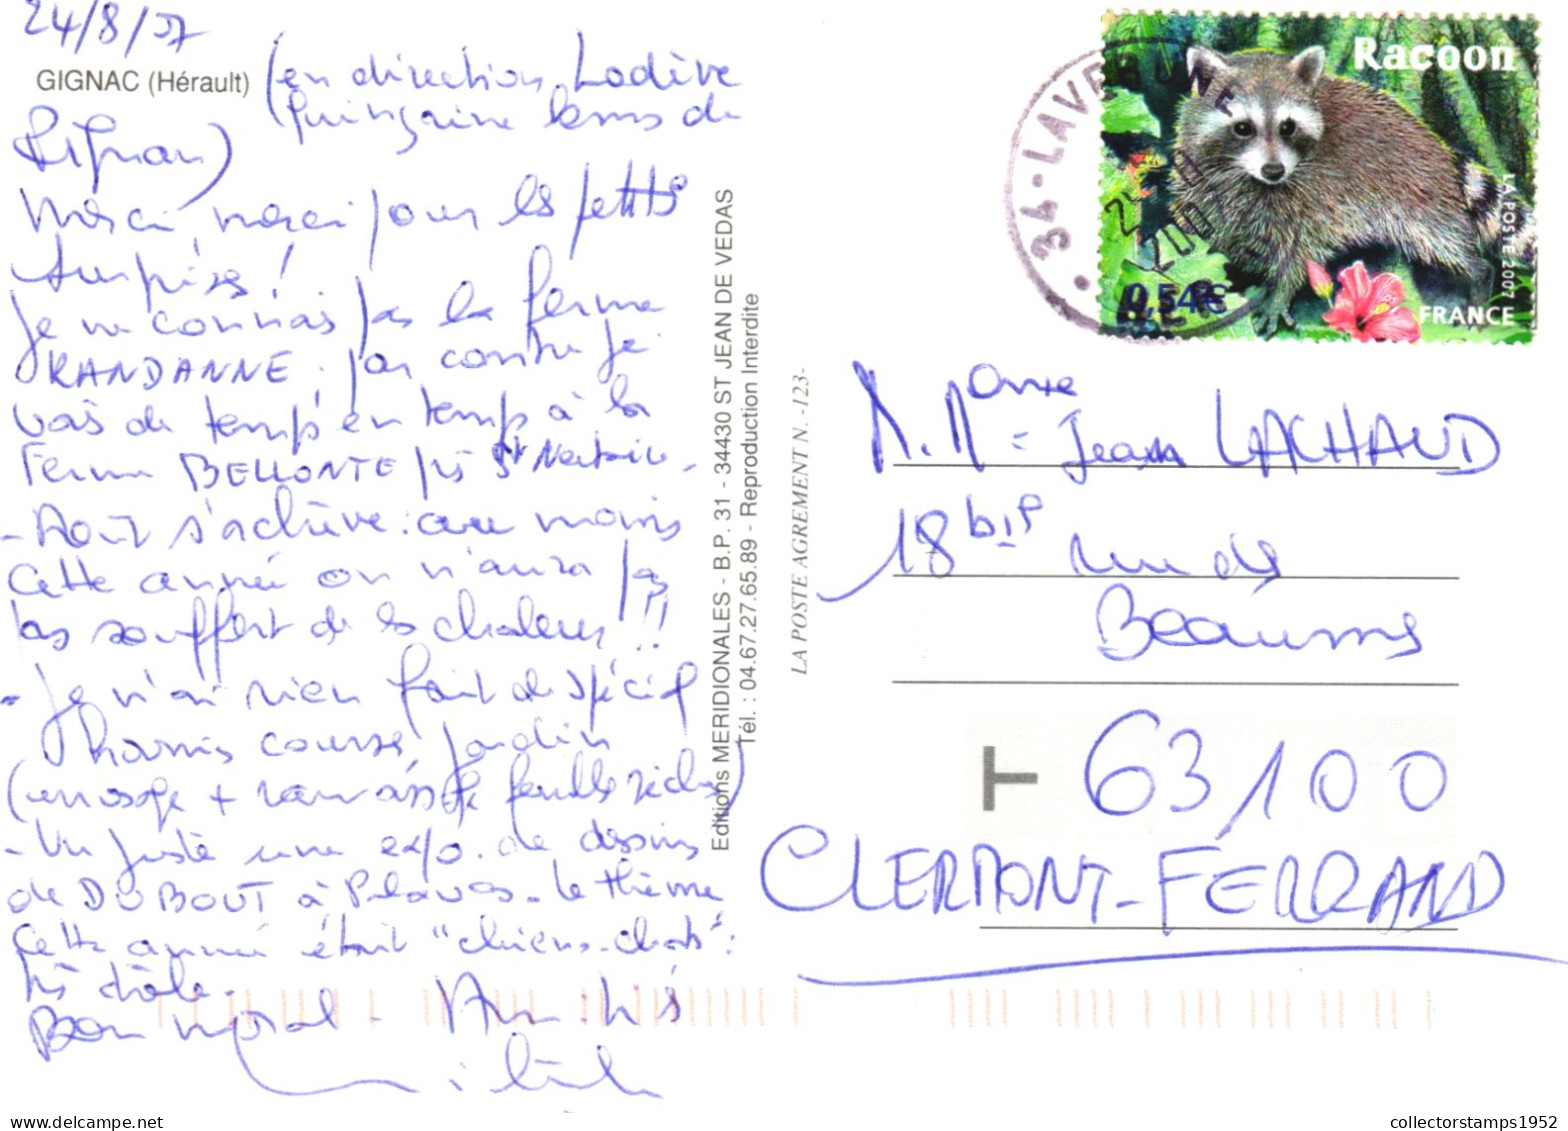 24/8/07
GIGNAC (Hérault)
(en direction Lodève
quinzaine kms de
Gignac)
Merci, merci pour les petits
surprises !
Je ne connais pas la ferme
RANDANNE. par contre je
vais de temps en temps à la
Ferme BELLONTE près St Nectaire.
- Août s'achève : au moins
cette année on n'aura pas
souffert de la chaleur !!
- Je n'ai rien fait de spécial
hormis courses, jardin
(arrosage + ramassage feuilles sèches)
- Vu juste une expo. de dessins
de DUBOUT à Palavas - le thème
cette année était "chiens-chats" :
très drôle.
Bon moral - Amitiés
Editions MERIDIONALES - B.P. 31 - 34430 ST JEAN DE VEDAS
Tél. : 04.67.27.65.89 - Reproduction Interdite
LA POSTE AGREMENT N. -123-
34-LAVERUNE
Racoon
LA POSTE 2007
0,54€
FRANCE
M. Mme Jean LACHAUD
18 bis rue de
Beaumes
63100
CLERMONT-FERRAND
collectorstamps1952